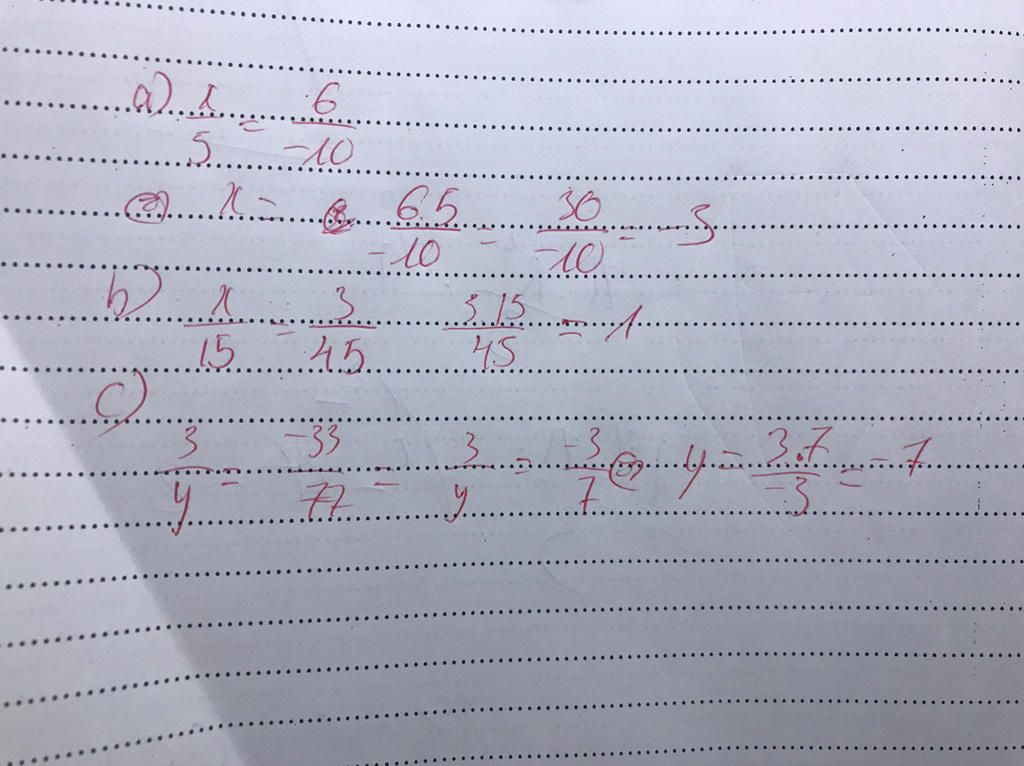 a) x/5 = 6/-10
⇔ x = 6.5/-10 = 30/-10 = -3
b) x/15 = 3/45 3.15/45 = 1
c)
3/y = -33/77 = 3/y = -3/7 ⇔ y = 3.7/-3 = -7